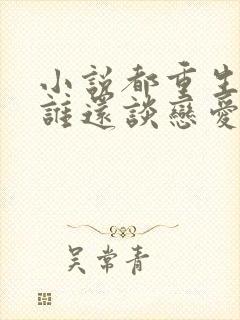 小說都重生
誰還談戀愛
吴常青